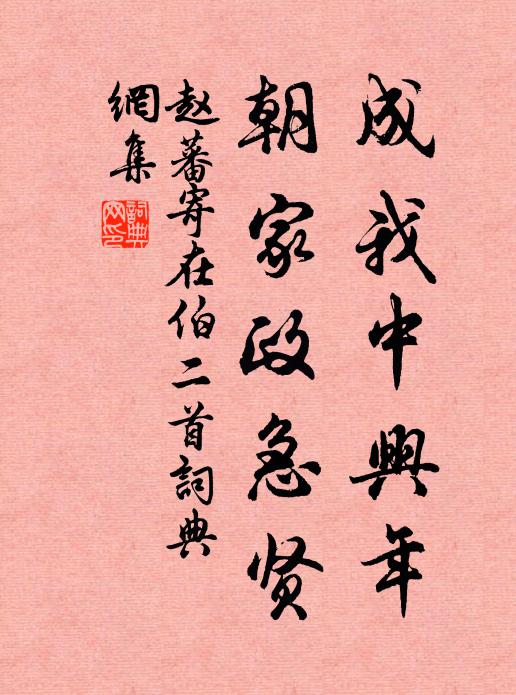 成我中興年
朝家政急贤
赵蕃寄在伯二首詞典
網集
詞典
网印